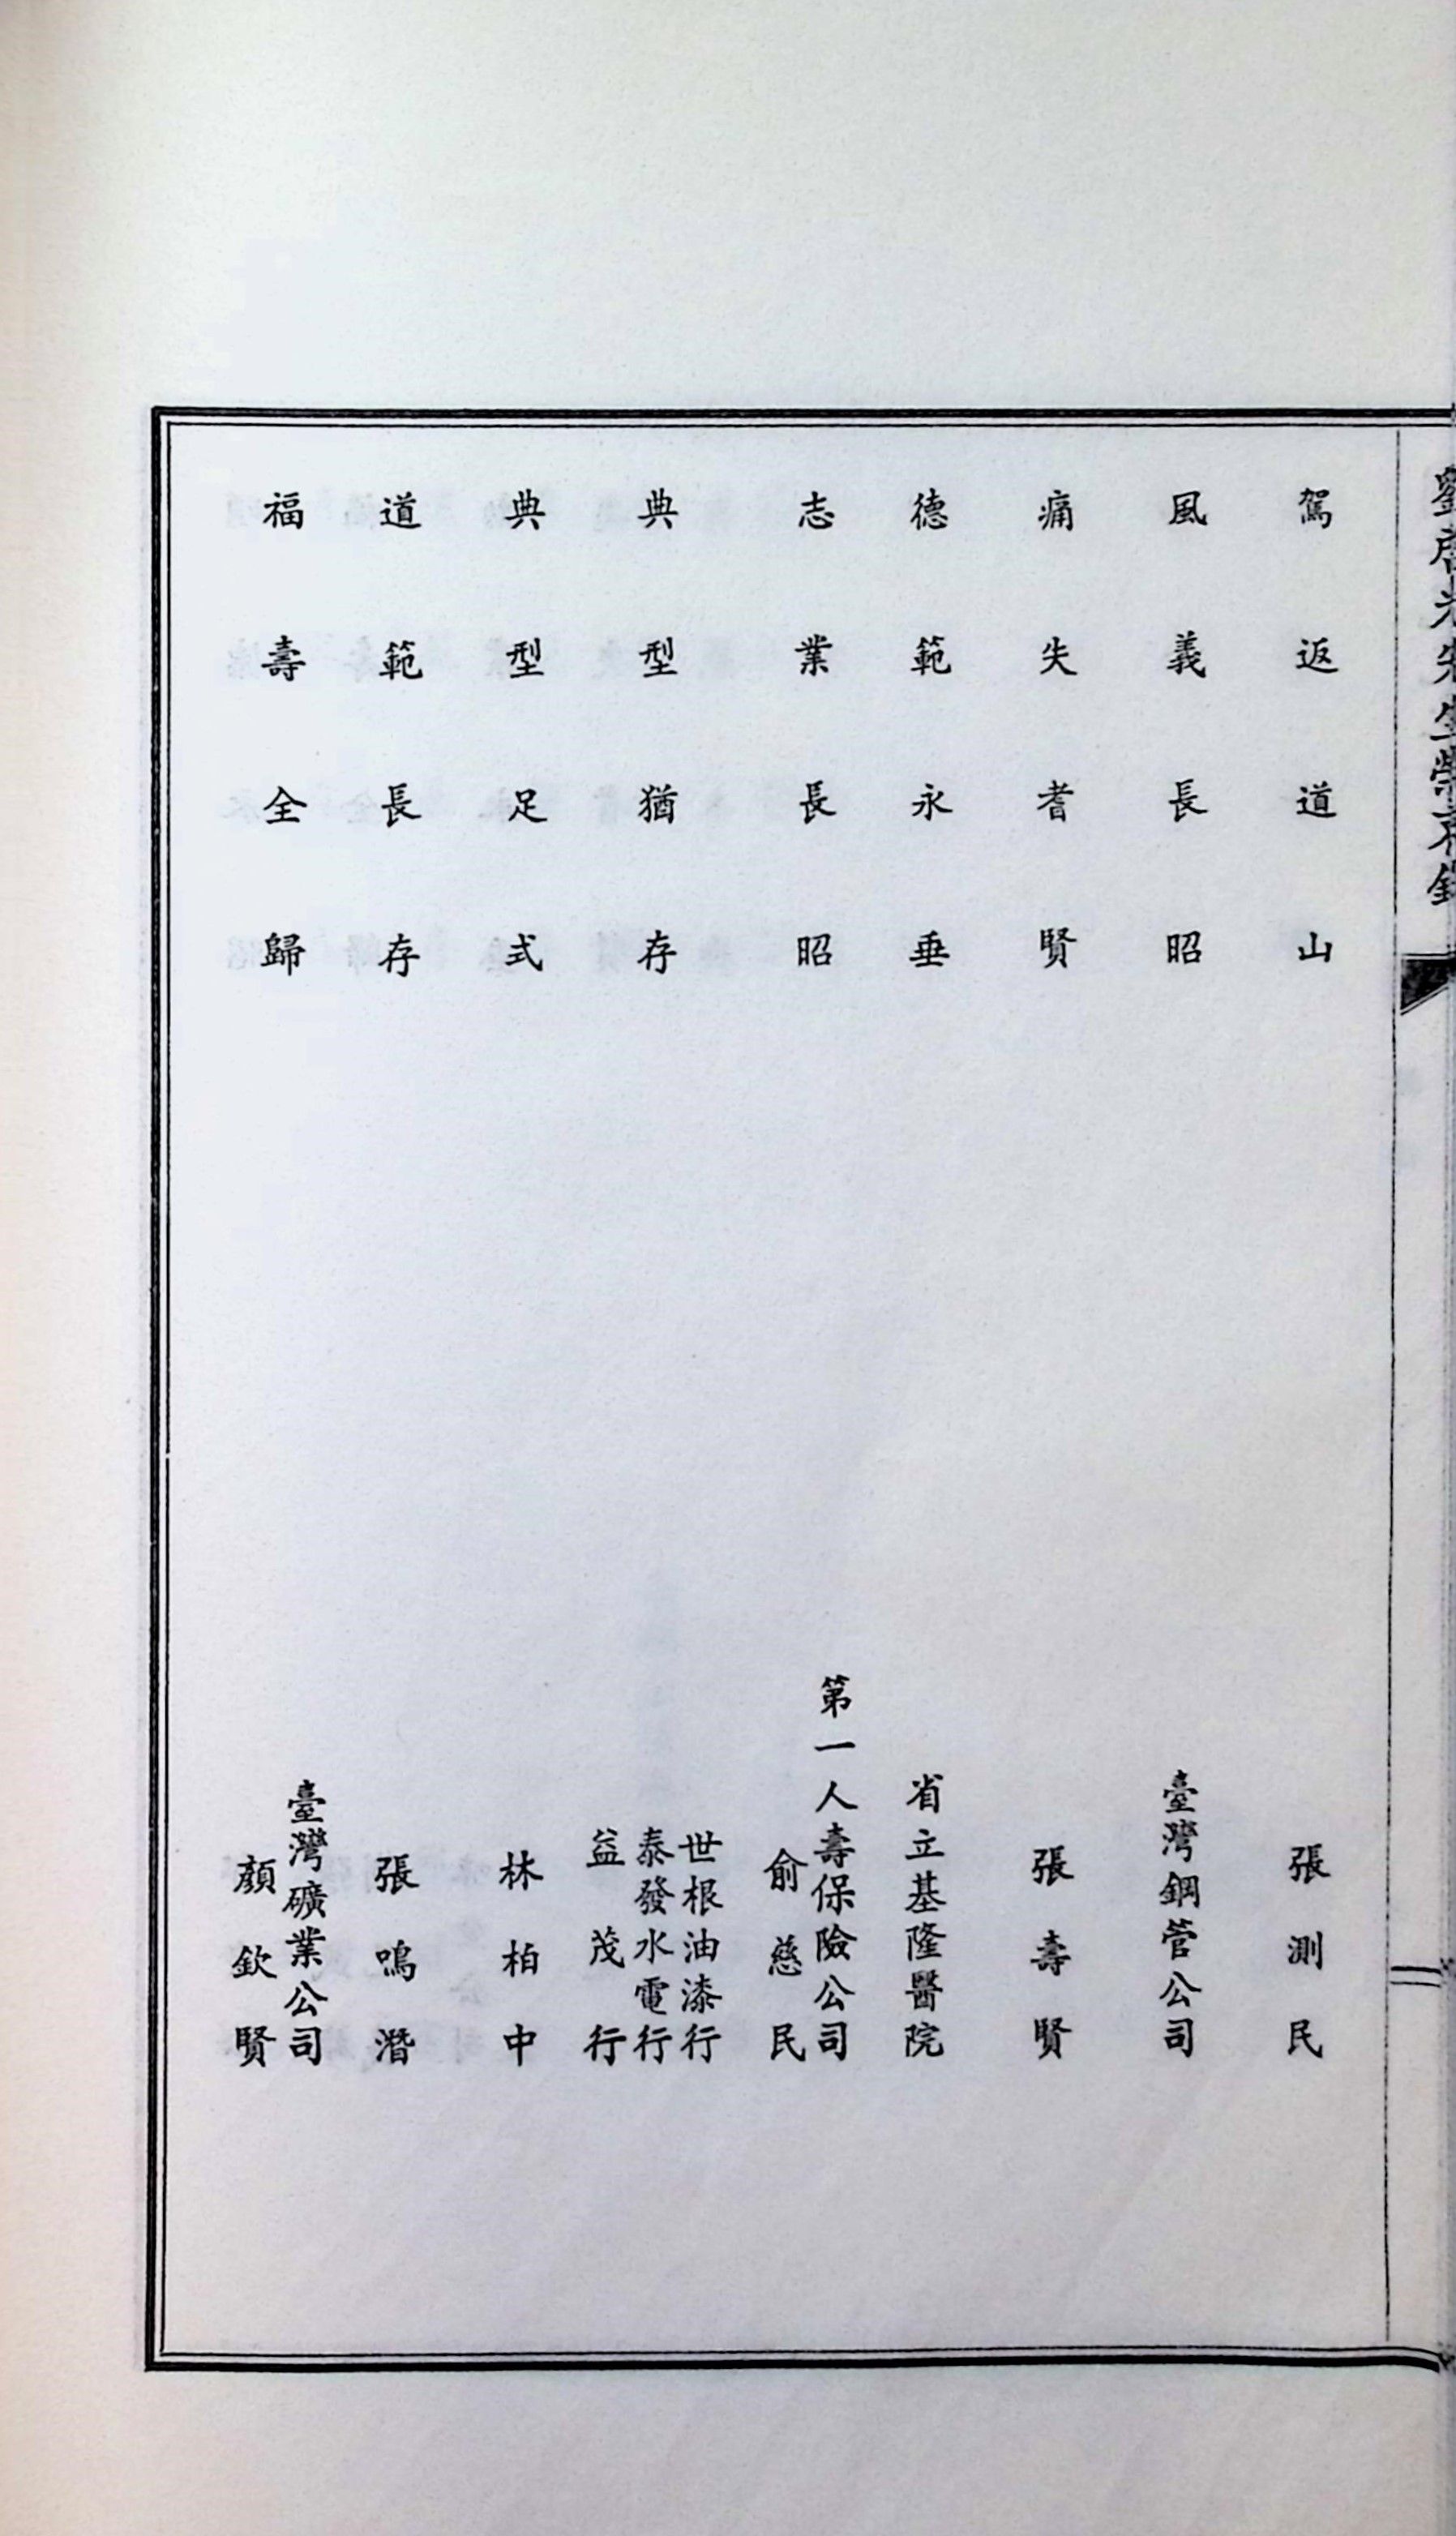 駕返道山
張測民
風義長昭
臺灣鋼管公司
痛失耆賢
張壽賢
德範永垂
省立基隆醫院
志業長昭
第一人壽保險公司
俞慈民
典型猶存
世根油漆行
泰發水電行
益茂行
典型足式
林柏中
道範長存
張鳴潛
福壽全歸
臺灣礦業公司
顏欽賢